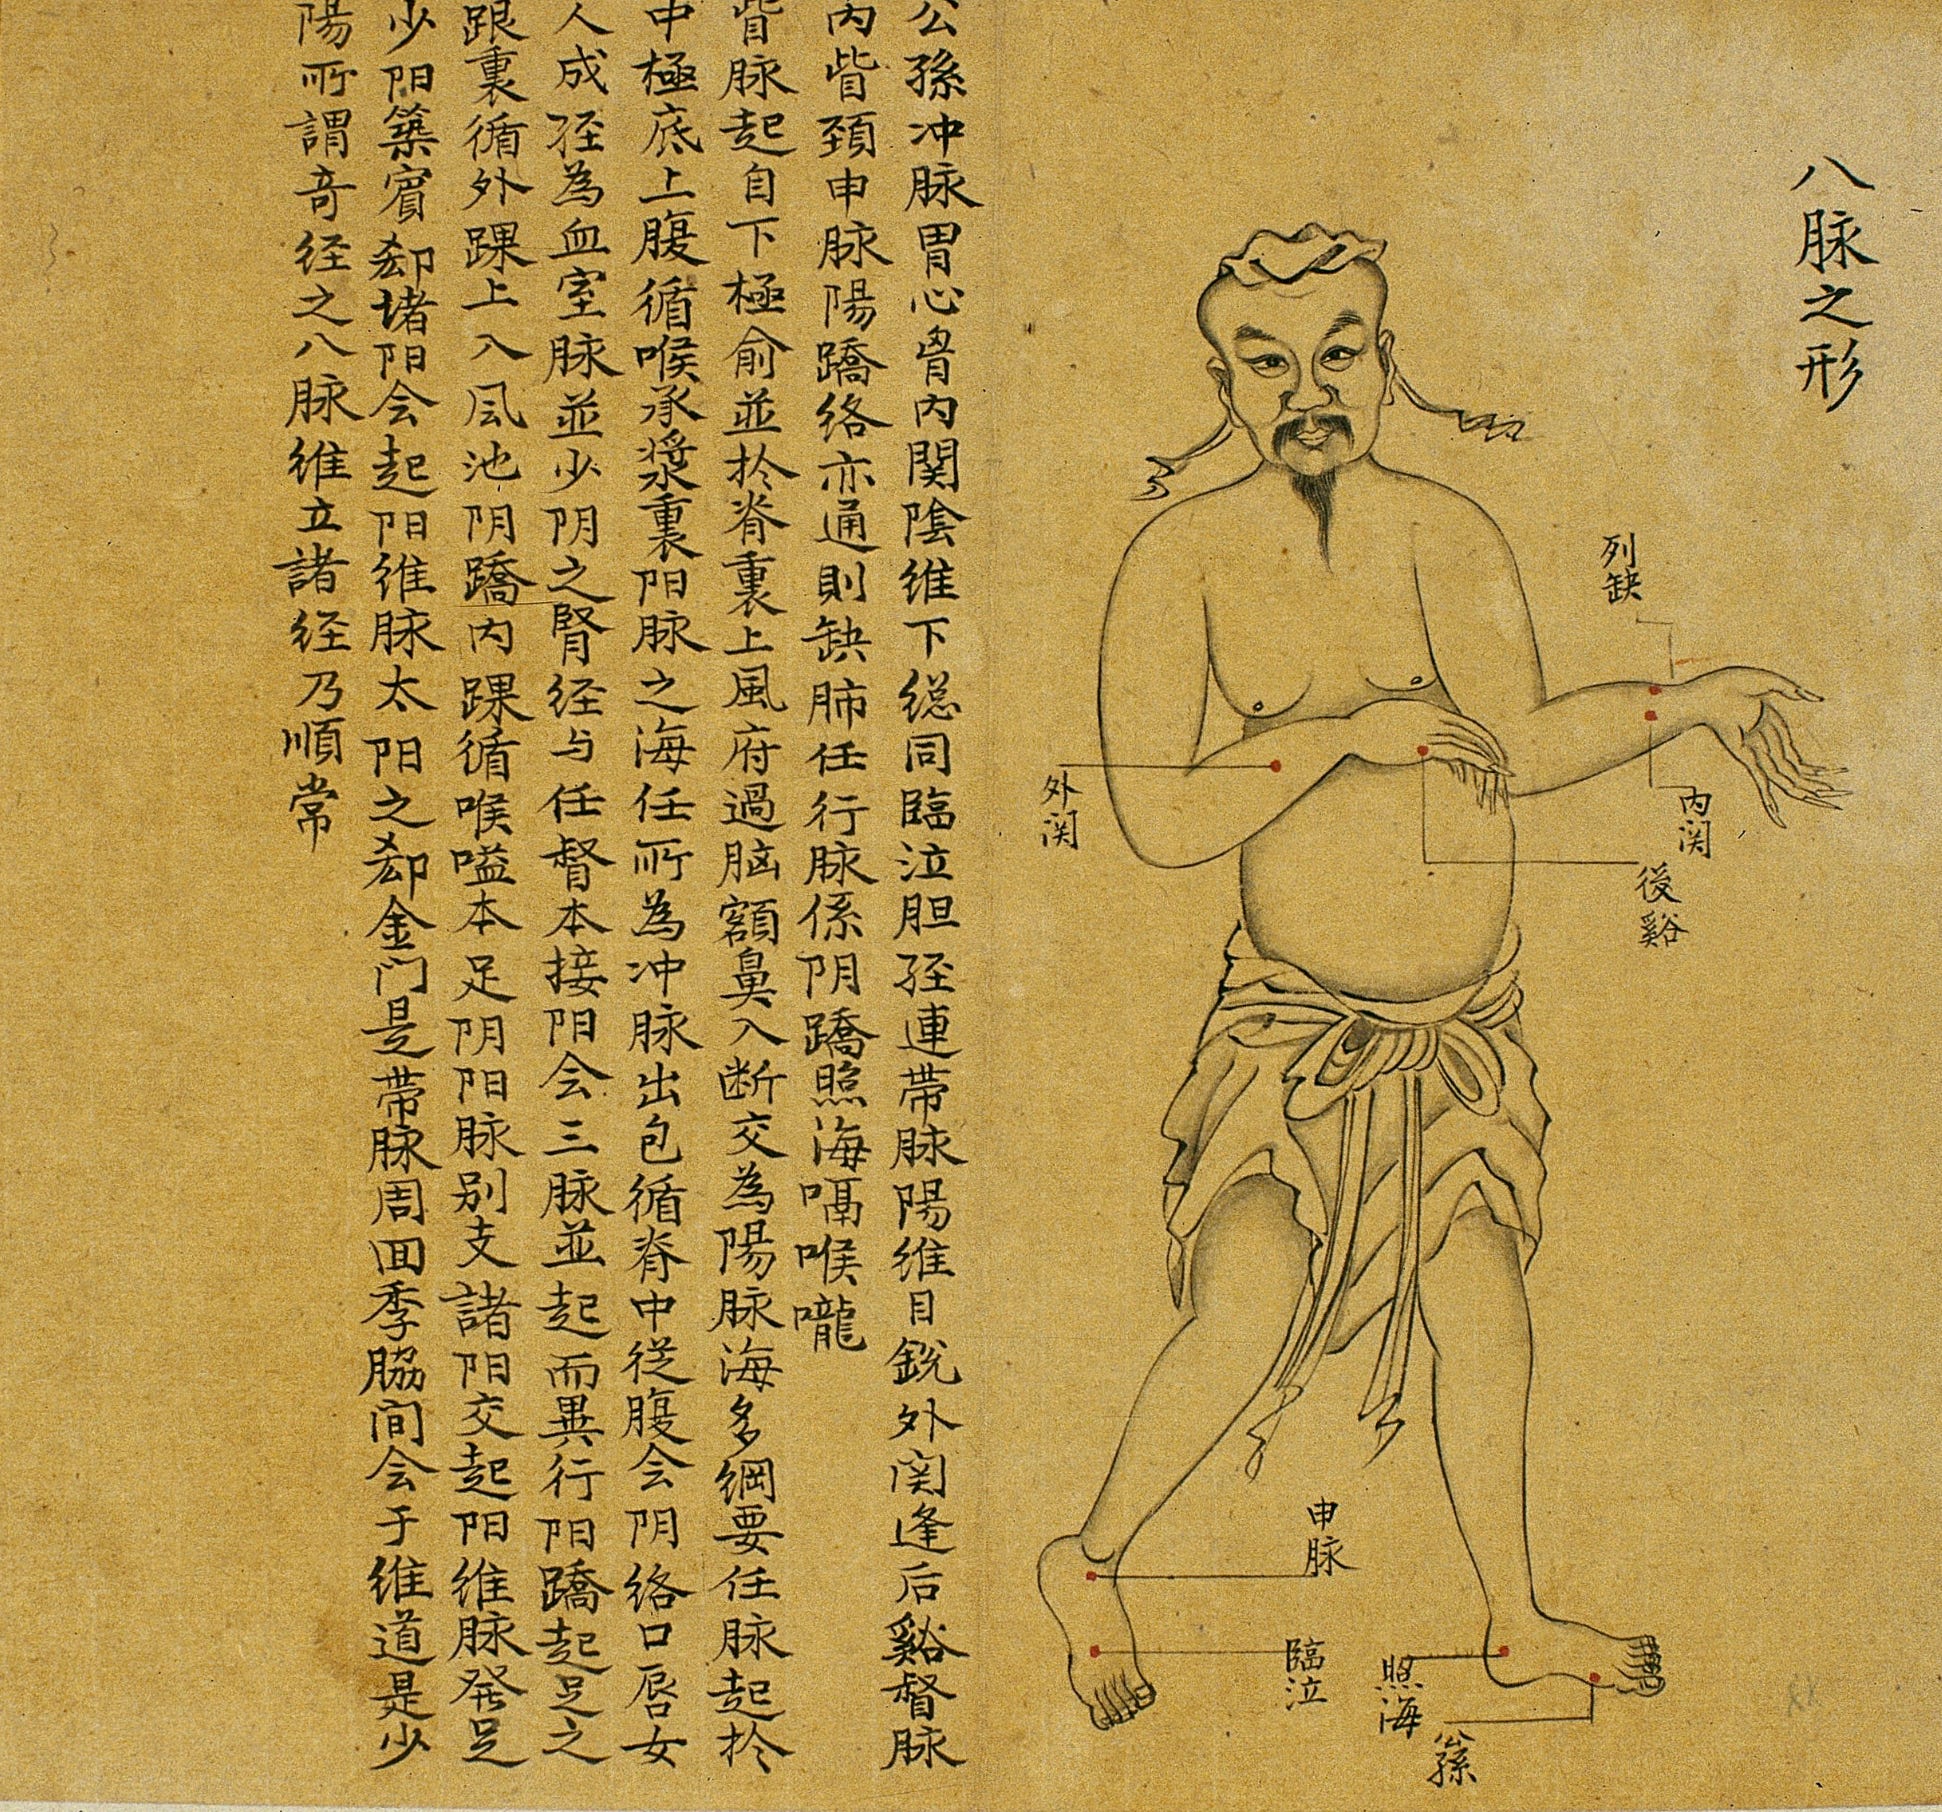 八脉之形
列缺
内関
後谿
外関
申脉
臨泣
照海
公孫
公孫冲脉胃心胷内関陰維下総同臨泣胆経連帯脉陽維目銳外関逢后谿督脉
内眥頚申脉陽蹻絡亦通則缺肺任行脉係阴蹻照海嗝喉嚨
督脉起自下極俞並扵脊裏上風府過脳額鼻入断交為陽脉海多綱要任脉起扵
中極底上腹循喉承漿裏阳脉之海任所為冲脉出包循脊中従腹会阴絡口唇女
人成経為血室脉並少阴之腎経与任督本接阳会三脉並起而異行阳蹻起足之
跟裏循外踝上入风池阴蹻内踝循喉嗌本足阴阳脉别支諸阳交起阳維脉発足
少阳築賓郄堵阳会起阳維脉太阳之郄金门是帯脉周回季脇间会于維道是少
陽所謂奇経之八脉維立諸経乃順常